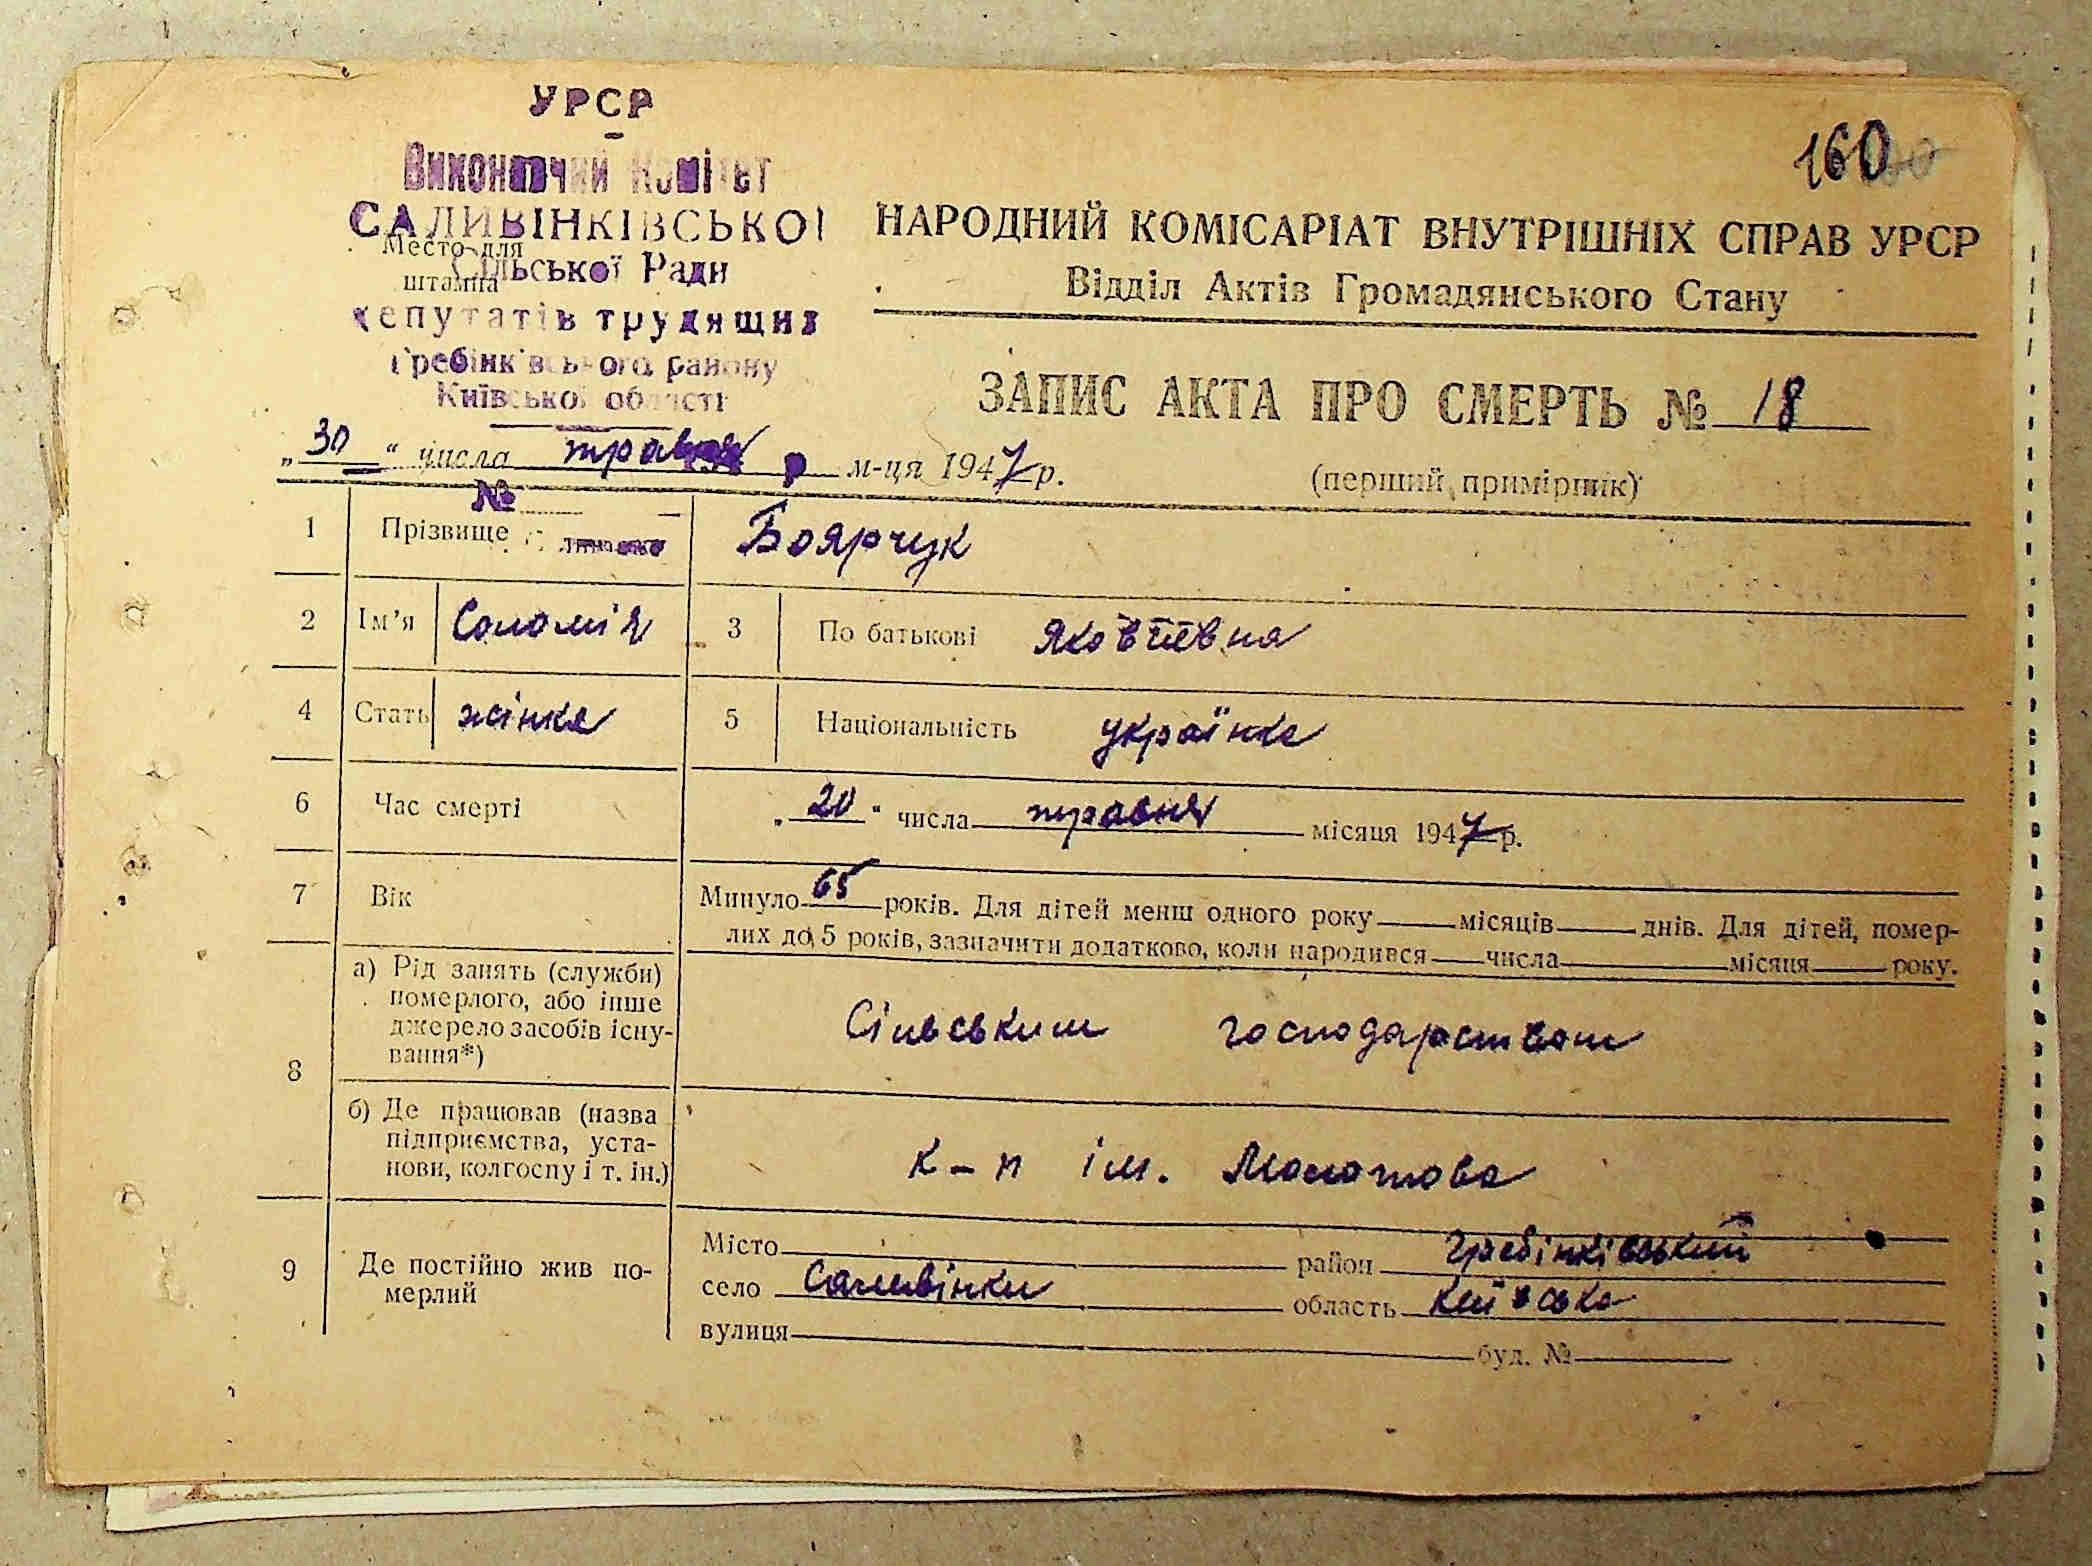 УРСР
Виконавчий Комітет
САЛИВІНКІВСЬКОЇ
Место для
Сільської Ради
штампа
депутатів трудящих
Гребінківського району
Київської області
160
НАРОДНИЙ КОМІСАРІАТ ВНУТРІШНІХ СПРАВ УРСР
Відділ Актів Громадянського Стану
ЗАПИС АКТА ПРО СМЕРТЬ № 18
„30“ числа травня м-ця 1947 р.
(перший примірник)
№
1 Прізвище Боярчук
2 Ім’я Соломія 3 По батькові Яковлівна
4 Стать жінка 5 Національність українка
6 Час смерті „20“ числа травня місяця 1947 р.
7 Вік Минуло 65 років. Для дітей менш одного року місяців днів. Для дітей, помер-
лих до 5 років, зазначити додатково, коли народився числа місяця року.
8 а) Рід занять (служби)
померлого, або інше
джерело засобів існу-
вання*)
Сільським господарством
б) Де працював (назва
підприємства, уста-
нови, колгоспу і т. ін.)
к-п ім. Молотова
9 Де постійно жив по-
мерлий
Місто район Гребінківський
село Саливінки область Київська
вулиця буд. №